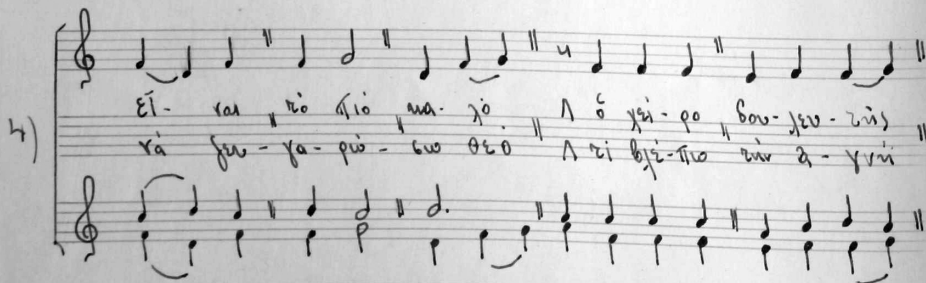 4)
εἶ- ναι τὸ πιὸ κα- λὸ Λ ὁ χεί- ρο βου- λευ- τὴς
νὰ ζευ- γα- ρώ- σω θὲ Λ τί βλέ- πω τὴν ἁ- γνὴ